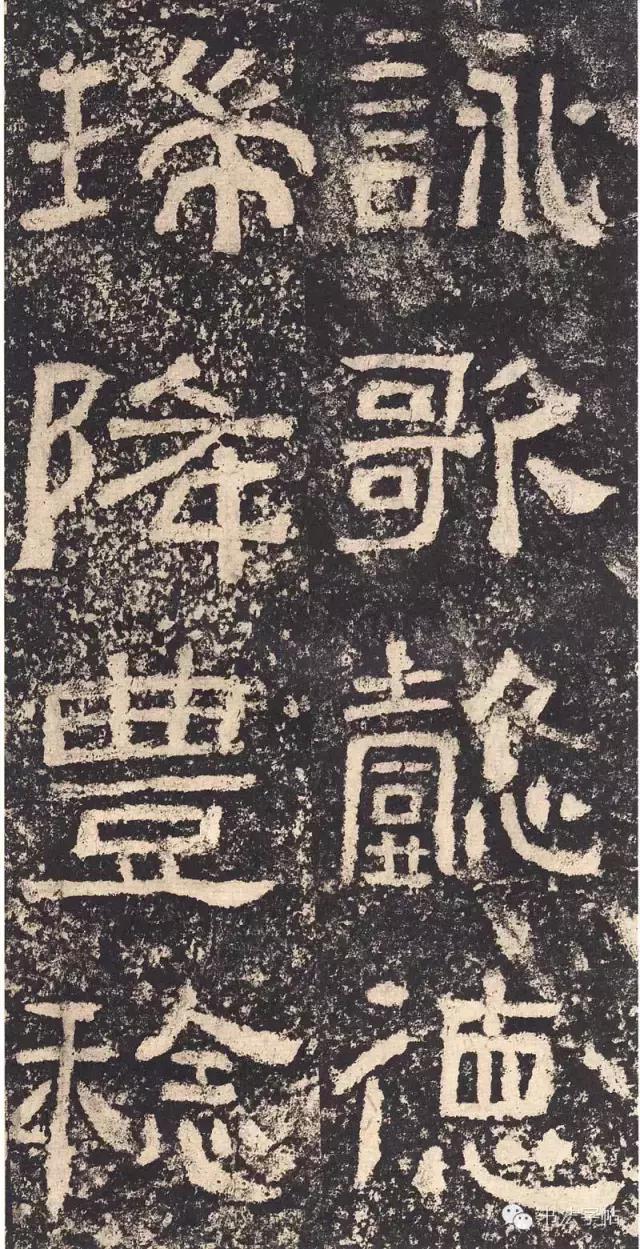 詠歌懿德
瑞降豐稔
书法字帖